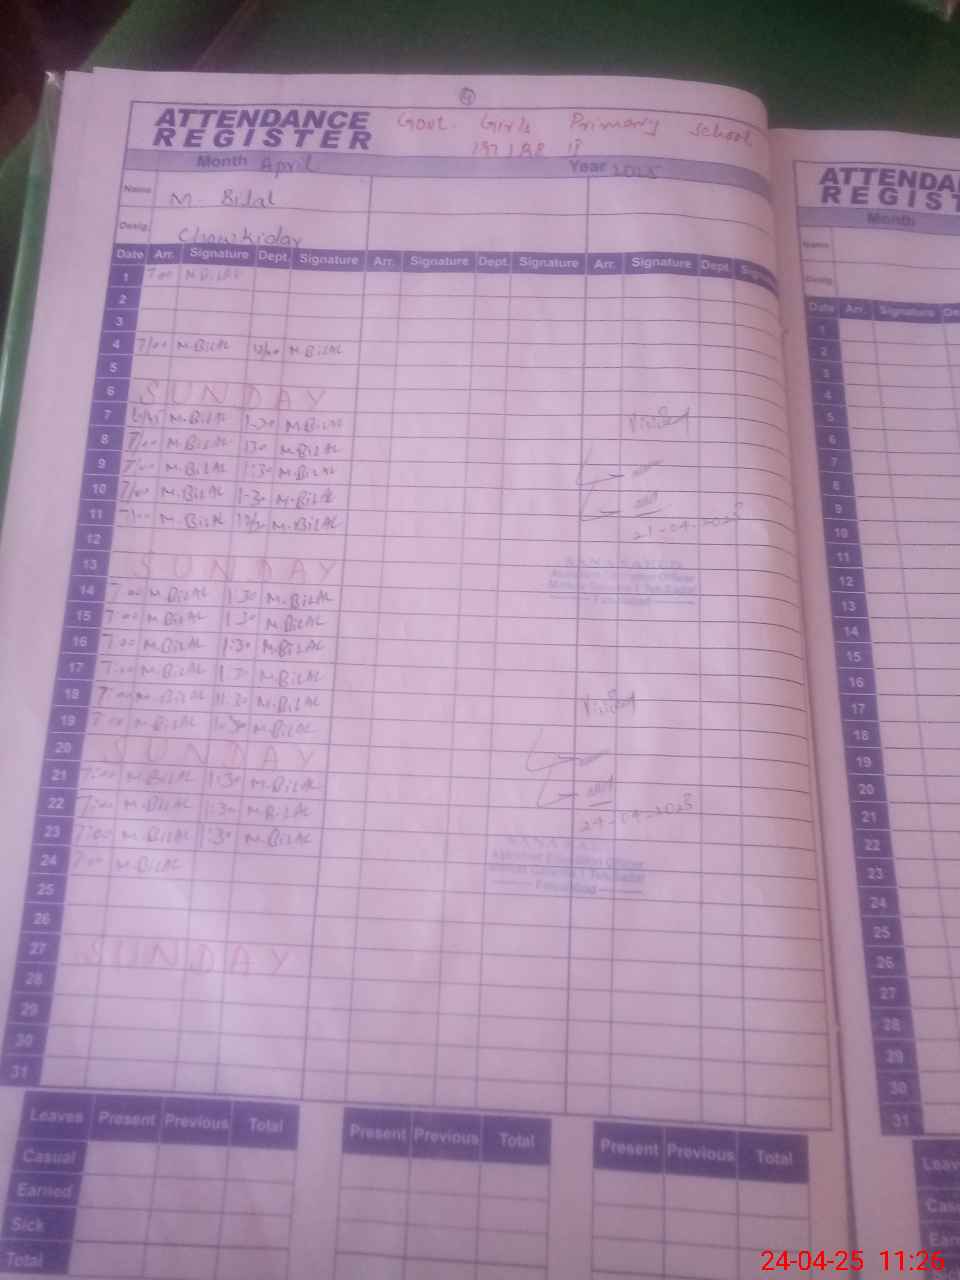 4
ATTENDANCE REGISTER
Govt. Girls Primary School
Month April Year 2025
Name M Bilal
Desig. Chowkidar
Date Arr. Signature Dept. Signature Arr. Signature Dept. Signature Arr. Signature Dept.
1 7:00 M.BiLAL
2
3
4 7/00 M.BiLAL 12/00 M.BiLAL
5
6 SUNDAY
7 M.BiLAL 1-30 M.BiLAL
8 7/00 M.BiLAL 130 M.BiLAL
9 7:00 M.BiLAL 1:30 M.BiLAL
10 7/00 M.BiLAL 1-30 M.BiLAL
11 7/00 M.BiLAL M.BiLAL
12
13 SUNDAY
14 7:00 M.BiLAL 1:30 M.BiLAL
15 7:00 M.BiLAL 1:30 M.BiLAL
16 7:00 M.BiLAL 1:30 M.BiLAL
17 7:00 M.BiLAL 1:30 M.BiLAL
18 7:00 M.BiLAL 1:30 M.BiLAL
19 7:00 M.BiLAL 1:30 M.BiLAL
20 SUNDAY
21 7:00 M.BiLAL 1:30 M.BiLAL
22 7:00 M.BiLAL 1:30 M.BiLAL
23 7:00 M.BiLAL 1:30 M.BiLAL
24 7:00 M.BiLAL
25
26
27 SUNDAY
28
29
30
31
Visited
21-04-2025
Assistant Education Officer
Faisalabad
Visited
24-04-2025
Assistant Education Officer
Faisalabad
Leaves Present Previous Total Present Previous Total Present Previous Total
Casual
Earned
Sick
Total
ATTENDA
REGIST
Month
Name
Desig.
Date Arr. Signature
1
2
3
4
5
6
7
8
9
10
11
12
13
14
15
16
17
18
19
20
21
22
23
24
25
26
27
28
29
30
31
Leav
Cas
Ear
24-04-25 11:26